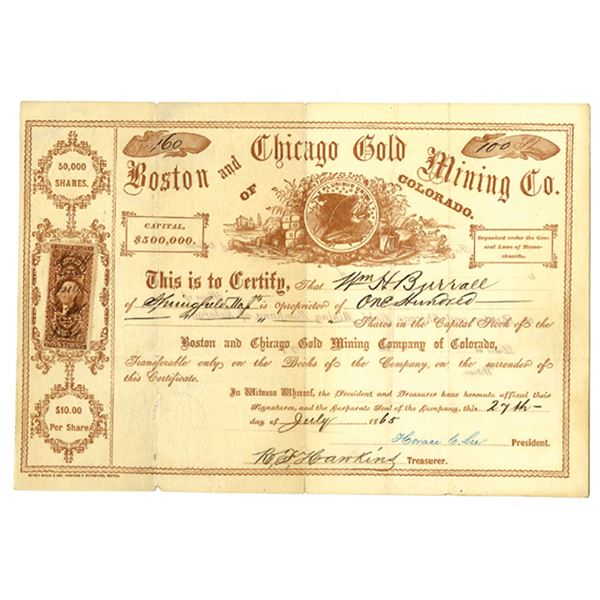 160
100
Boston and Chicago Gold Mining Co.
OF COLORADO.
50,000
SHARES.
E PLURIBUS UNUM
CAPITAL,
$500,000.
Organized under the Gen-
eral Laws of Massa-
chusetts.
This is to Certify, That Wm H Burrall
of Springfield Mass is proprietor of One Hundred
" " Shares in the Capital Stock of the
Boston and Chicago Gold Mining Company of Colorado,
Transferable only on the Books of the Company, on the surrender of
this Certificate.
In Witness Whereof, the President and Treasurer have hereunto affixed their
Signatures, and the Corporate Seal of the Company, this 27th
day of July 1865
$10.00
Per Share
Horace C. Lee President.
R F Hawkins Treasurer.